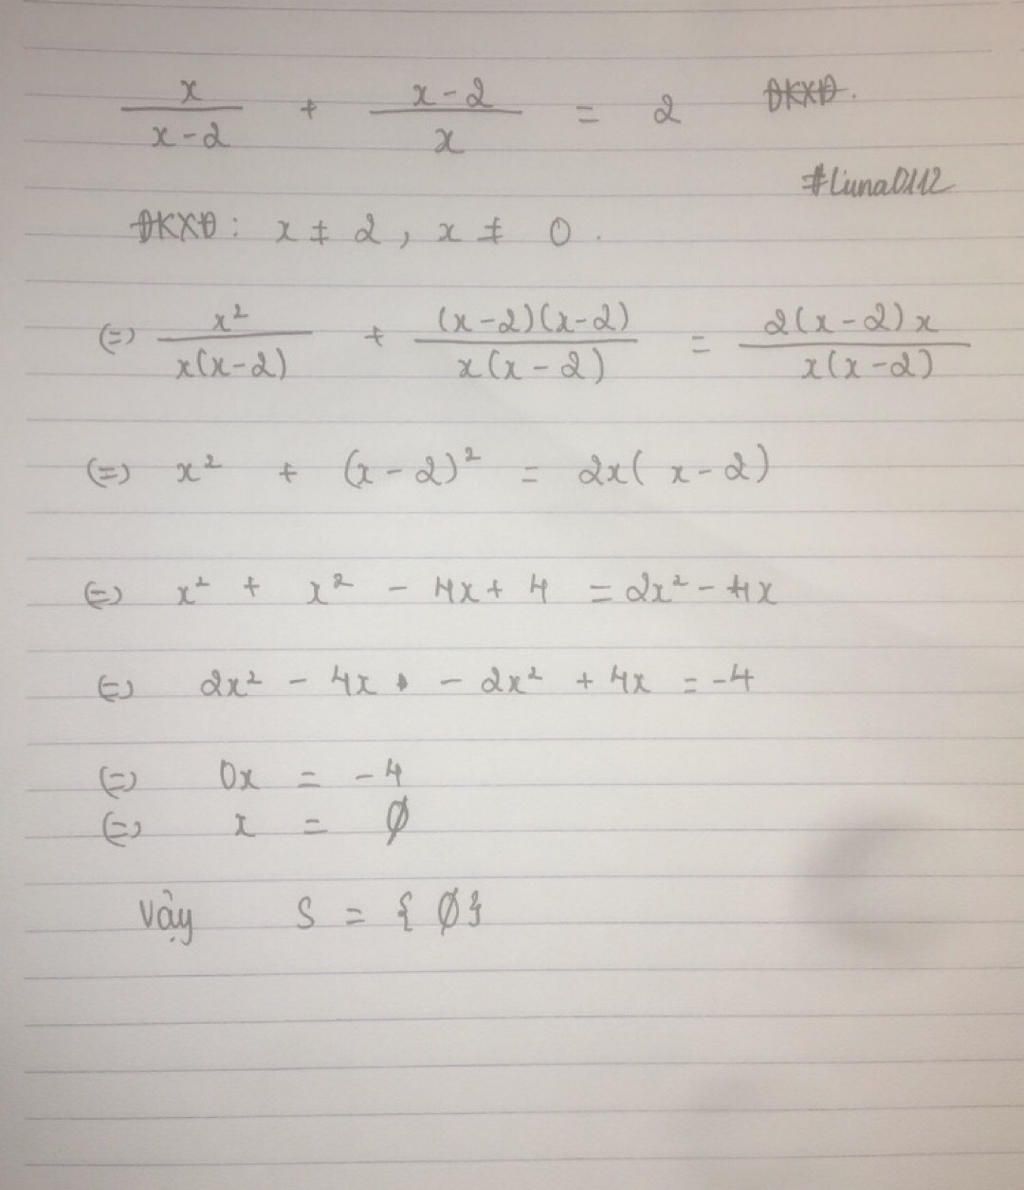 x/(x-2) + (x-2)/x = 2 ĐKXĐ.
#Luna0112
ĐKXĐ: x ≠ 2, x ≠ 0.
(=) x²/(x(x-2)) + ((x-2)(x-2))/(x(x-2)) = (2(x-2)x)/(x(x-2))
(=) x² + (x-2)² = 2x(x-2)
(=) x² + x² - 4x + 4 = 2x² - 4x
(=) 2x² - 4x - 2x² + 4x = -4
(=) 0x = -4
(=) x = ∅
Vậy S = {∅}